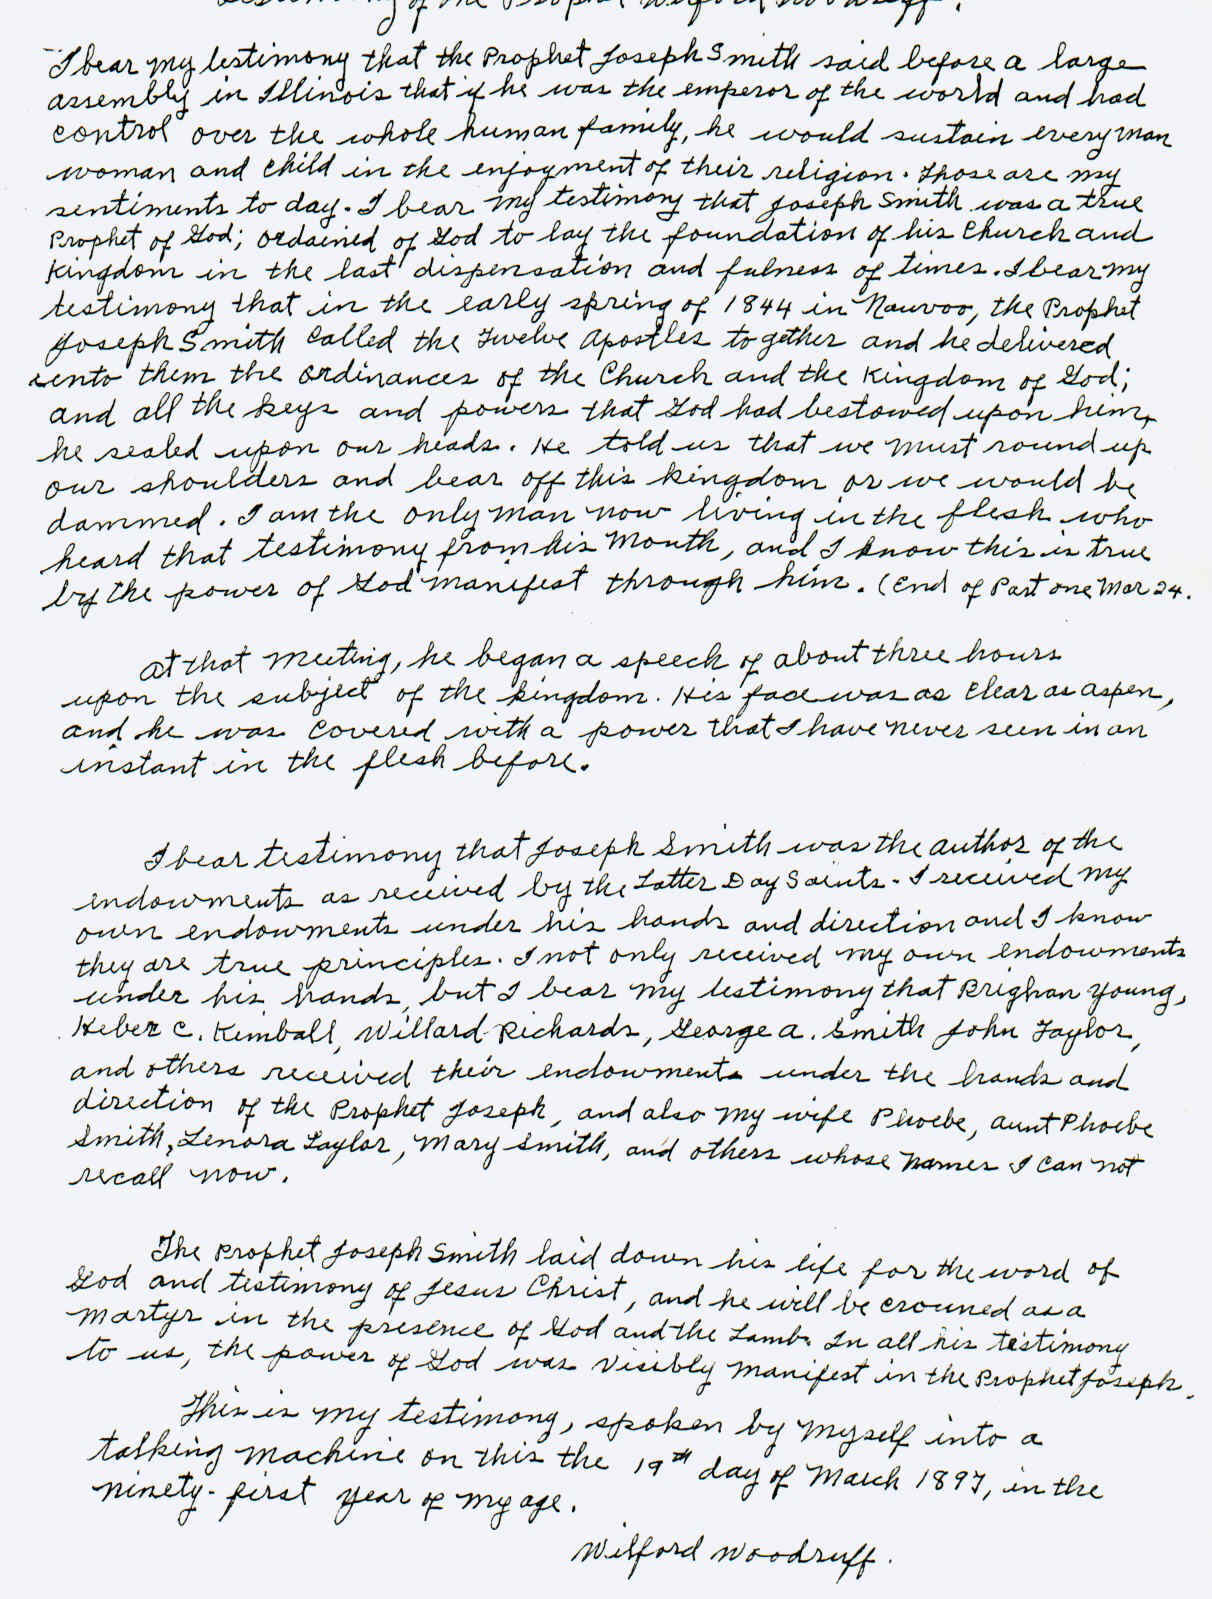 Testimony of the Prophet Wilford Woodruff.
I bear my testimony that the Prophet Joseph Smith said before a large
assembly in Illinois that if he was the emperor of the world and had
control over the whole human family, he would sustain every man
woman and child in the enjoyment of their religion. Those are my
sentiments to day. I bear my testimony that Joseph Smith was a true
Prophet of God; ordained of God to lay the foundation of his Church and
Kingdom in the last dispensation and fulness of times. I bear my
testimony that in the early spring of 1844 in Nauvoo, the Prophet
Joseph Smith called the Twelve Apostles together and he delivered
unto them the ordinances of the Church and the Kingdom of God;
and all the keys and powers that God had bestowed upon him,
he sealed upon our heads. He told us that we must round up
our shoulders and bear off this kingdom or we would be
dammed. I am the only man now living in the flesh who
heard that testimony from his mouth, and I know this is true
by the power of God manifest through him. (End of Part one Mar 24.
At that meeting, he began a speech of about three hours
upon the subject of the kingdom. His face was as clear as aspen,
and he was covered with a power that I have never seen in an
instant in the flesh before.
I bear testimony that Joseph Smith was the author of the
endowments as received by the Latter Day Saints. I received my
own endowments under his hands and direction and I know
they are true principles. I not only received my own endowments
under his hands, but I bear my testimony that Brighan Young,
Heber C. Kimball, Willard Richards, George A. Smith John Taylor,
and others received their endowments under the hands and
direction of the Prophet Joseph, and also my wife Phoebe, aunt Phoebe
Smith, Lenora Taylor, Mary Smith, and others whose names I can not
recall now.
The Prophet Joseph Smith laid down his life for the word of
God and testimony of Jesus Christ, and he will be crowned as a
martyr in the presence of God and the Lamb. In all his testimony
to us, the power of God was visibly manifest in the Prophet Joseph.
This is my testimony, spoken by myself into a
talking machine on this the 19th day of March 1897, in the
ninety-first year of my age.
Wilford Woodruff.